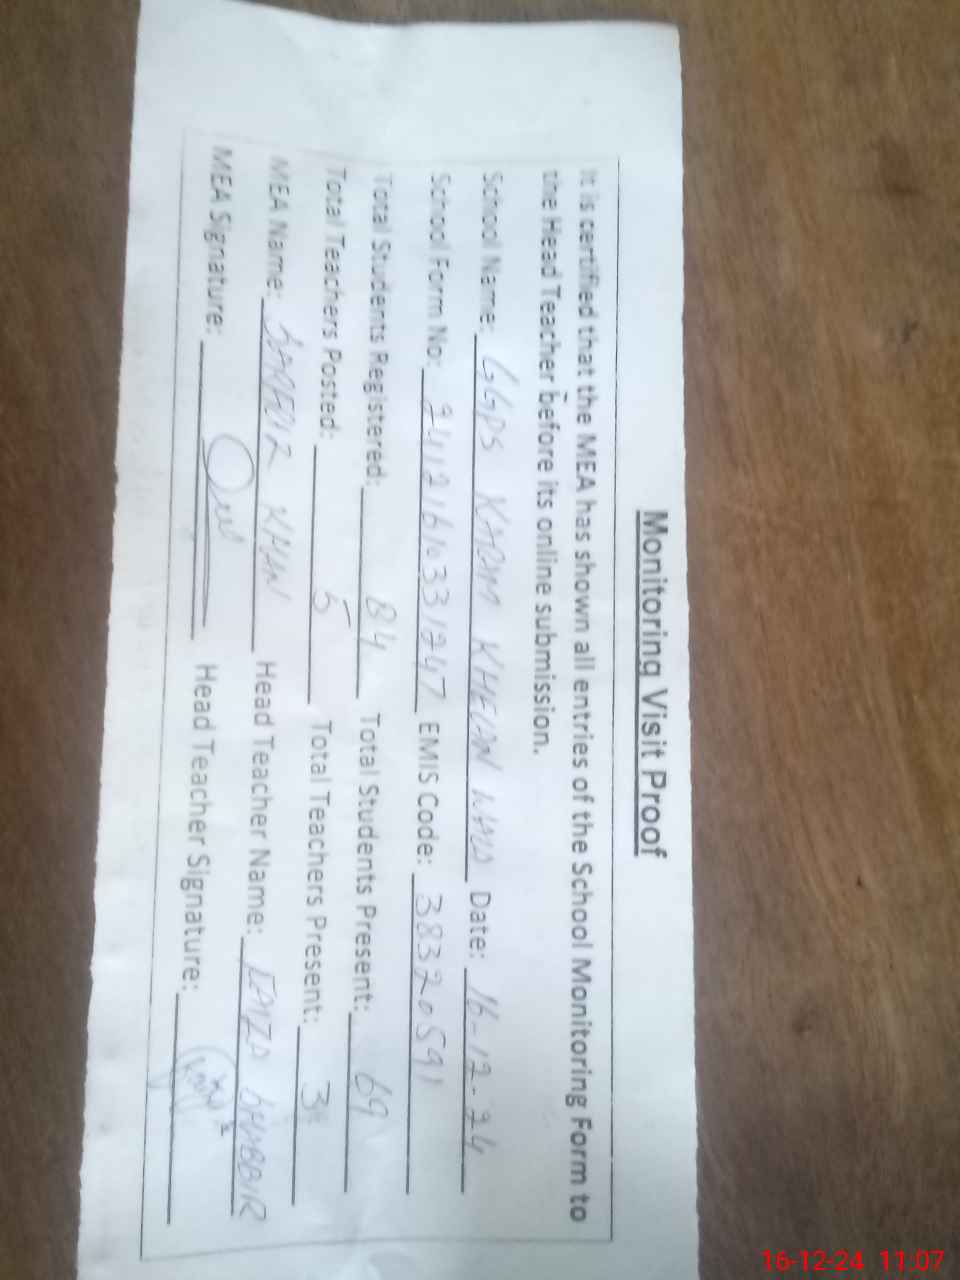 Monitoring Visit Proof
It is certified that the MEA has shown all entries of the School Monitoring Form to
the Head Teacher before its online submission.
School Name: GGPS KARM KHELAN WALA Date: 16-12-24
School Form No: 24121610331247 EMIS Code: 38320591
Total Students Registered: 84 Total Students Present: 69
Total Teachers Posted: 5 Total Teachers Present: 3
MEA Name: SARFRAZ KHAN Head Teacher Name: SHABBIR
MEA Signature: Head Teacher Signature:
16-12-24 11:07